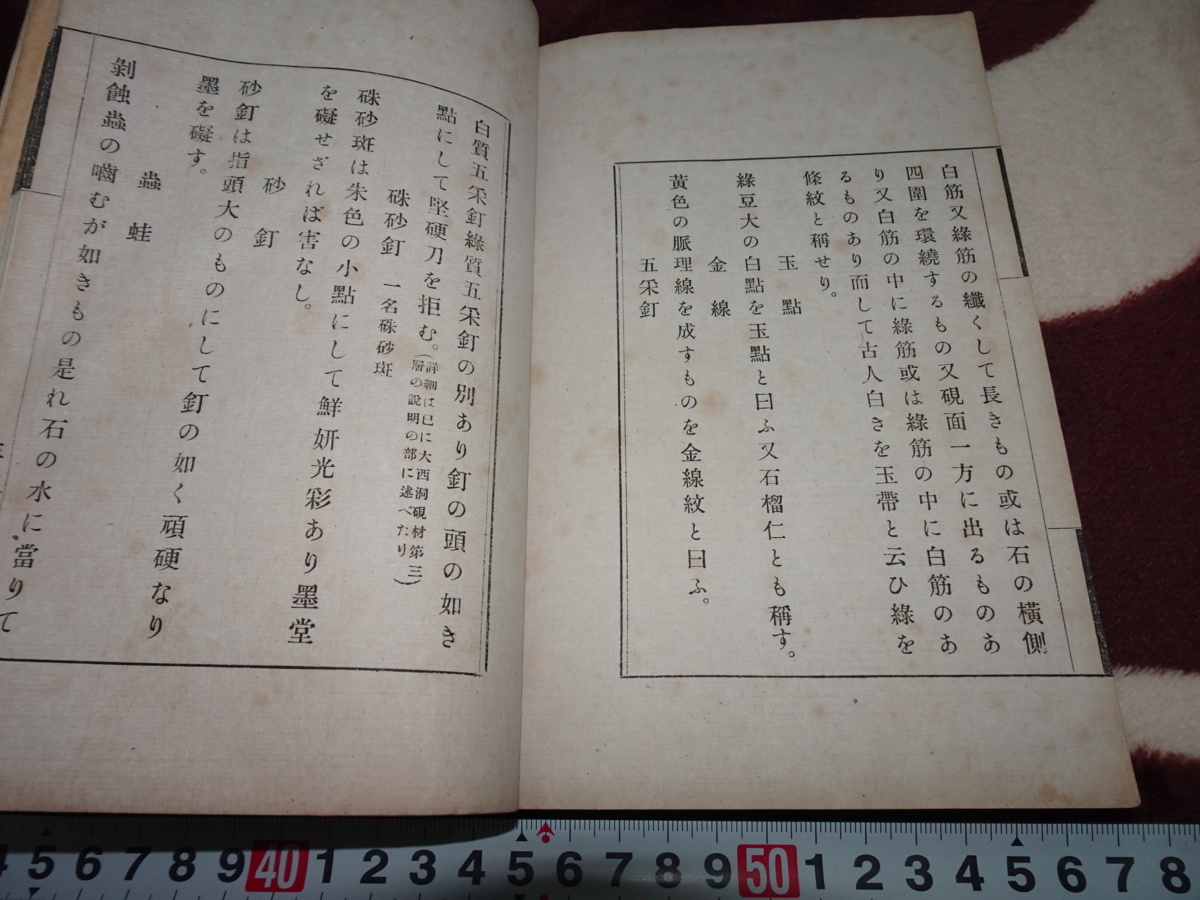 白筋又綠筋の纖くして長きもの或は石の橫側
四圍を環繞するもの又硯面一方に出るものあ
り又白筋の中に綠筋或は綠筋の中に白筋のあ
るものあり而して古人白きを玉帶と云ひ綠を
條紋と稱せり。
玉點
綠豆大の白點を玉點と曰ふ又石榴仁とも稱す。
金線
黃色の脈理線を成すものを金線紋と曰ふ。
五釆釘
白質五釆釘綠質五釆釘の別あり釘の頭の如き
點にして堅硬刀を拒む。(詳細は已に大西洞硯材第三層の說明の部に述べたり)
硃砂釘 一名硃砂斑
硃砂斑は朱色の小點にして鮮姸光彩あり墨堂
を礙せざれば害なし。
砂釘
砂釘は指頭大のものにして釘の如く頑硬なり
墨を礙す。
蟲蛀
剝蝕蟲の嚙むが如きもの是れ石の水に當りて
4 5 6 7 8 9 40 1 2 3 4 5 6 7 8 9 50 1 2 3 4 5 6 7 8